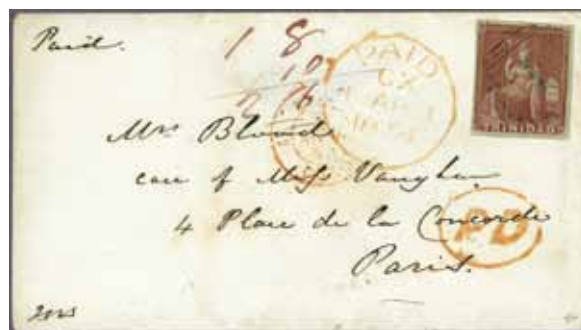 Paid.
1 8
10
2 6
PAID
TRINIDAD
Mrs Blound
care of Miss Vaughan
4 Place de la Concorde
PD
Paris.